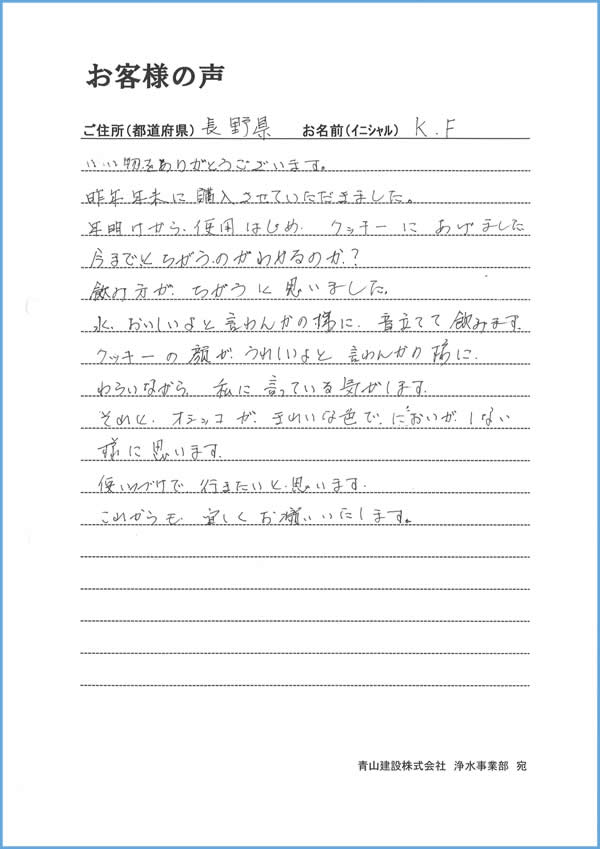 お客様の声
ご住所（都道府県） 長野県 お名前（イニシャル） K.F
いい物をありがとうございます。
昨年年末に購入させていただきました。
年明けから、使用はじめ、クッキーにあげました
今までとちがうのがわかるのか？
飲み方が、ちがうと思いました。
水、おいしいよと言わんかの様に、音立てて飲みます。
クッキーの顔が、うれしいよと言わんかの様に、
わらいながら、私に言っている気がします。
それと、オシッコが、きれいな色で、においが、しない
様に思います。
使いつづけて行きたいと思います。
これからも、宜しくお願いいたします。
青山建設株式会社 浄水事業部 宛